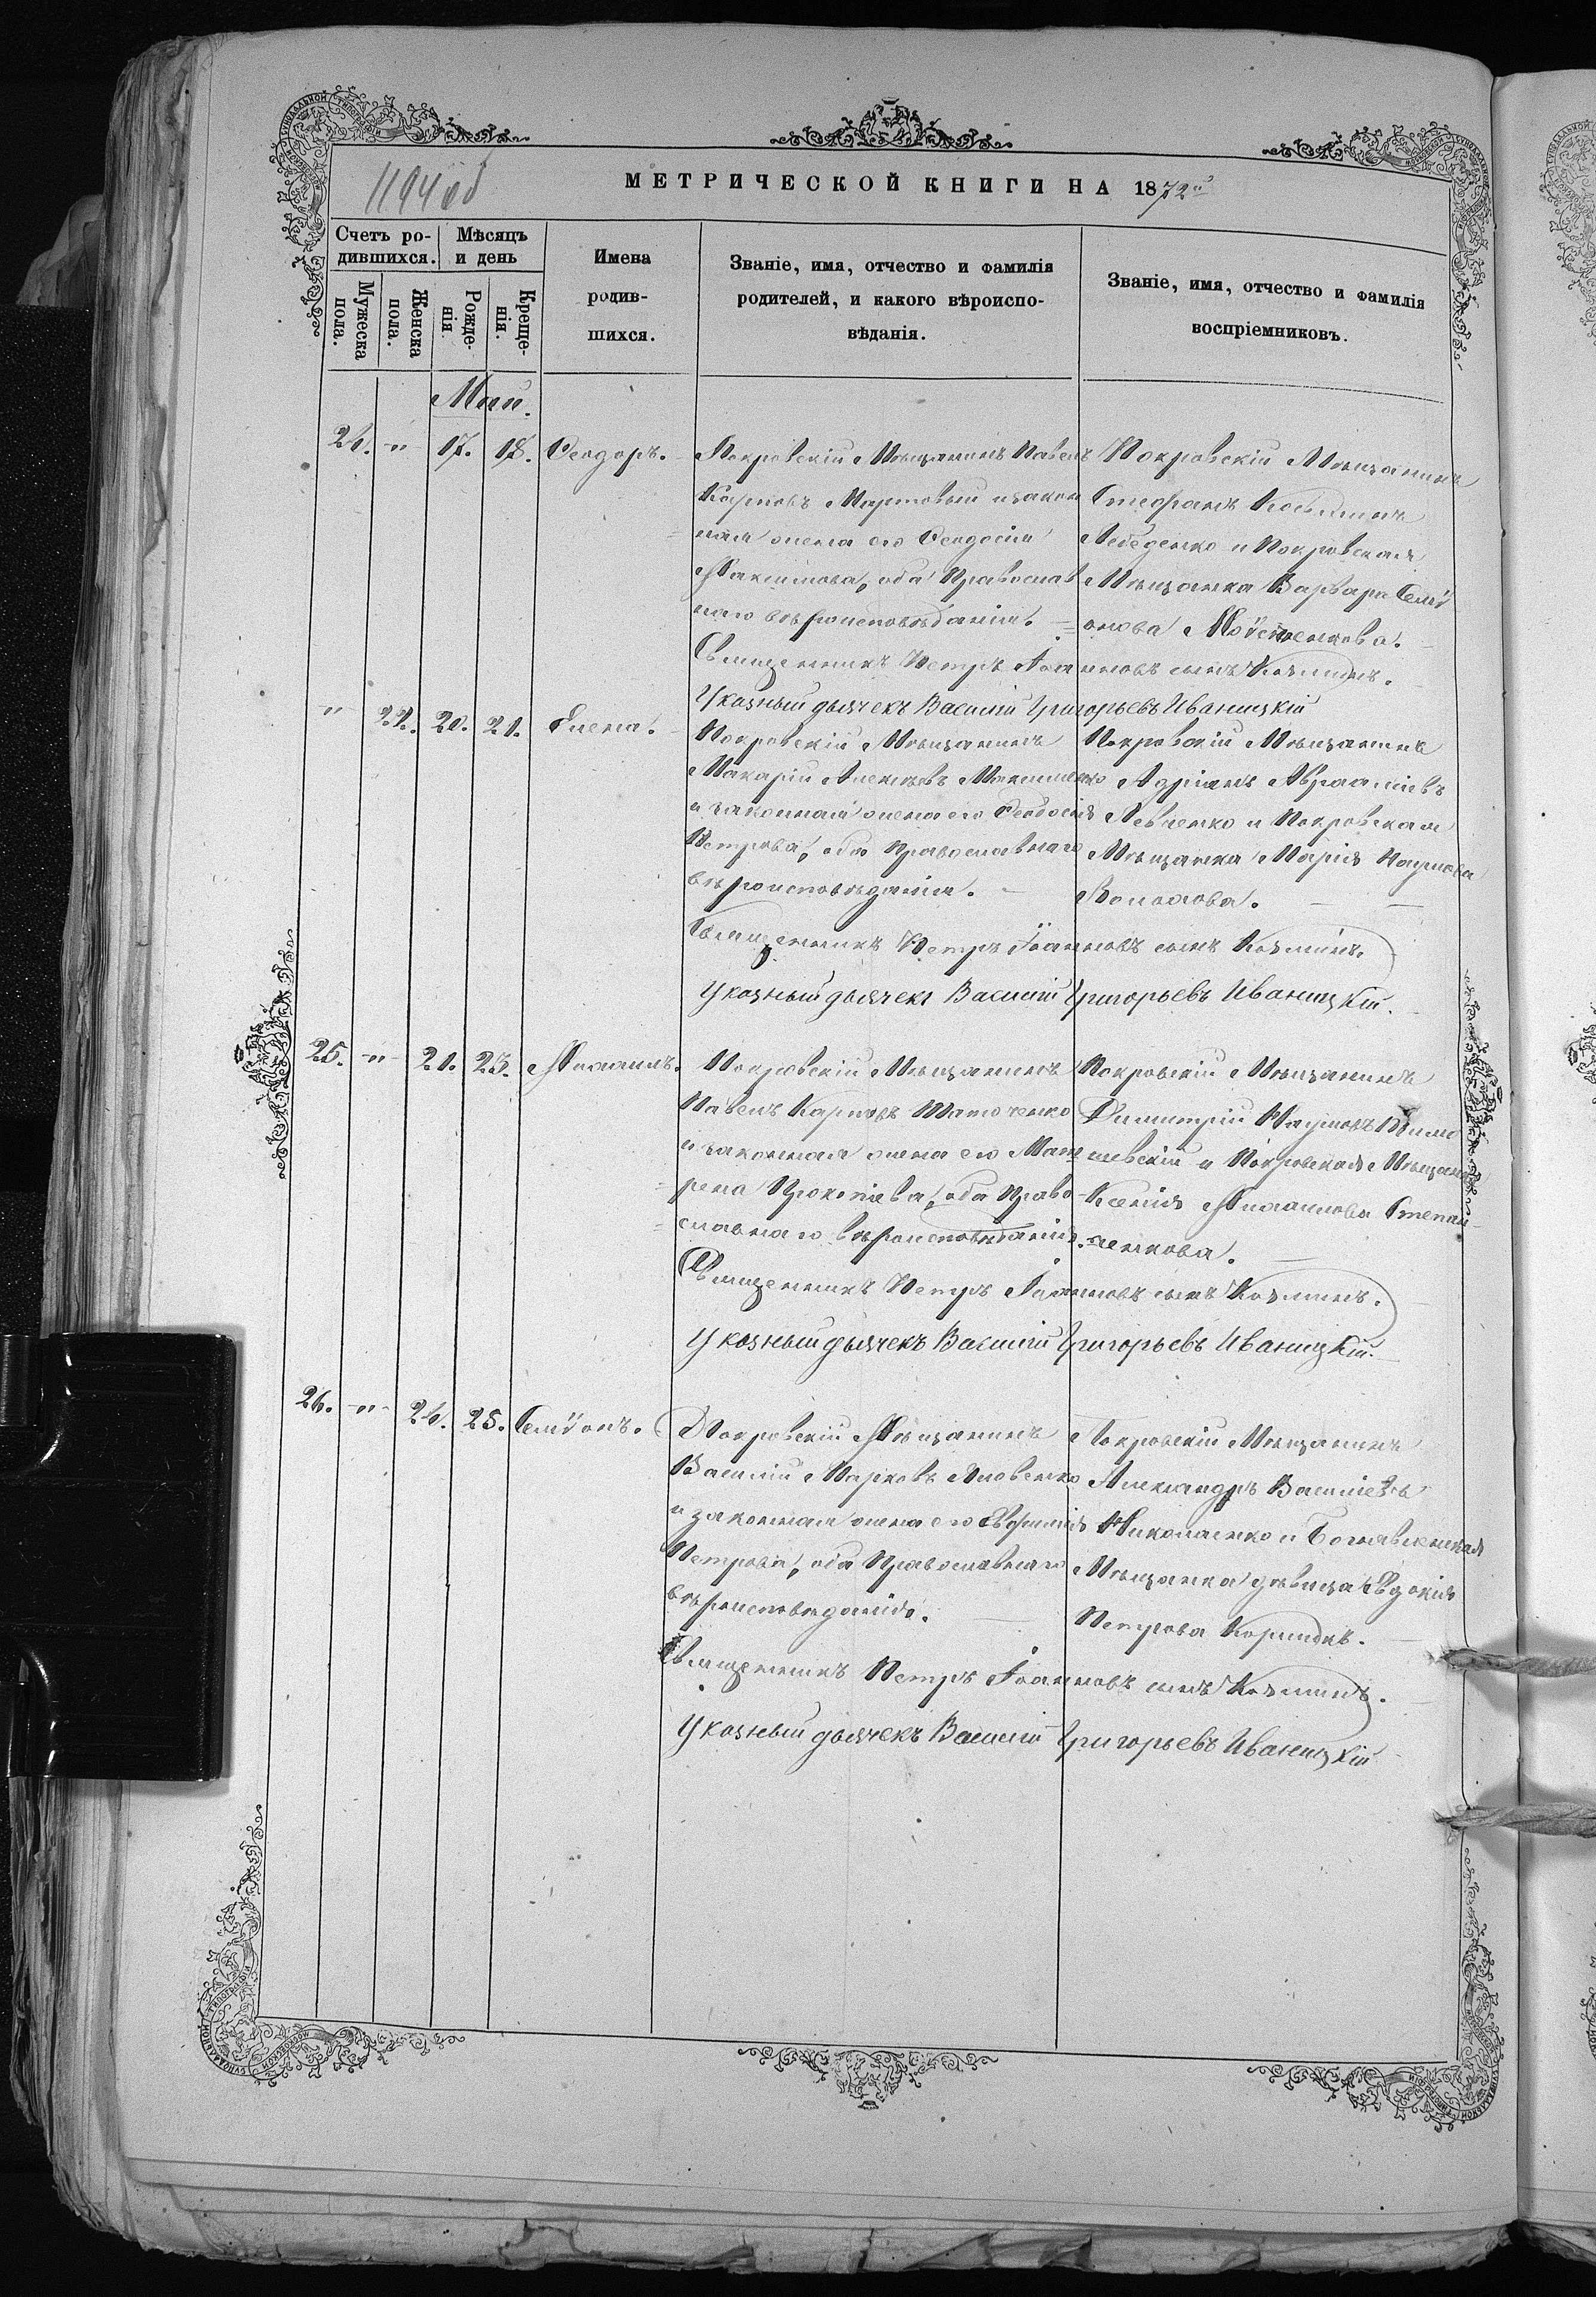 1194 об
МЕТРИЧЕСКОЙ КНИГИ НА 1872й
Счетъ ро-
дившихся.
Мѣсяцъ
и день
Мужеска
пола.
Женска
пола.
Рожде-
нія.
Креще-
нія.
Имена
родив-
шихся.
Званіе, имя, отчество и фамилія
родителей, и какого вѣроиспо-
вѣданія.
Званіе, имя, отчество и фамилія
воспріемниковъ.
Май.
24. " 17. 18. Ѳеодоръ.
Покровскій Мѣщанинъ Павелъ
Карповъ Мартовый и закон
ная жена его Ѳеодосія
Максимова, оба Православ
наго вѣроисповѣданія.
Покровскій Мѣщанинъ
Стефанъ Косьминъ
Лебеденко и Покровская
Мѣщанка Варвара Семі
онова
Священникъ Петръ Іоанновъ сынъ Козминъ.
Указный дьячекъ Василій Григорьевъ Иваницкій
" 22. 20. 21. Елена.
Покровскій Мѣщанинъ
Макарій Алексѣевъ Максименко
и законная жена его Ѳеодосія
Петрова, оба Православнаго
вѣроисповѣданія.
Покровскій Мѣщанинъ
Адріанъ Авраміевъ
Левченко и Покровская
Мѣщанка Марія Наумова
Священникъ Петръ Іоанновъ сынъ Козминъ.
Указный дьячекъ Василій Григорьевъ Иваницкій.
25. " 21. 23. Михаилъ.
Покровскій Мѣщанинъ
Павелъ Карповъ
и законная жена его Мат
рена Прокопіева, оба Право-
славнаго вѣроисповѣданія.
Покровскій Мѣщанинъ
Димитрій Наумовъ
и Покровская Мѣщанка
Ксенія Михаилова Степан-
ченкова.
Священникъ Петръ Іоанновъ сынъ Козминъ.
Указный дьячекъ Василій Григорьевъ Иваницкій.
26. " 24. 25. Семіонъ.
Покровскій Мѣщанинъ
Василій Марковъ Яковенко
и законная жена его Евфимія
Петрова, оба Православнаго
вѣроисповѣданія.
Покровскій Мѣщанинъ
Александръ Василіевъ
Николаенко и
Мѣщанка дѣвица Евдокія
Петрова
Священникъ Петръ Іоанновъ сынъ Козминъ.
Указный дьячекъ Василій Григорьевъ Иваницкій